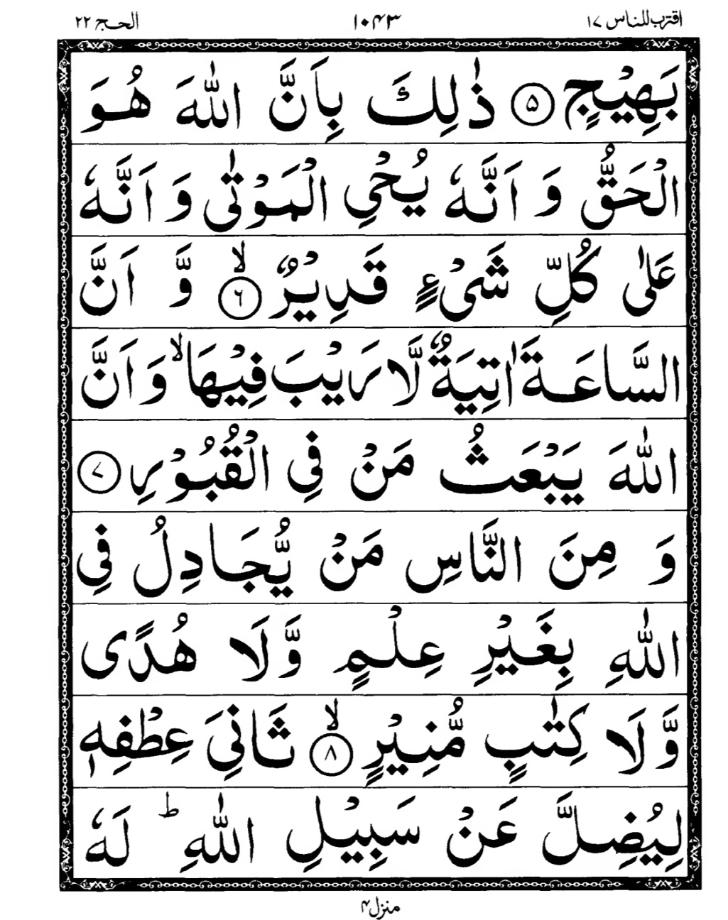 اقترب للناس ۱۷ ۱۰۴۳ الحج ۲۲
بَهِیْجٍ ۝۵ ذٰلِكَ بِاَنَّ اللّٰهَ هُوَ
الْحَقُّ وَ اَنَّهٗ یُحْیِ الْمَوْتٰی وَ اَنَّهٗ
عَلٰی كُلِّ شَیْءٍ قَدِیْرٌ ۝۶ۙ وَّ اَنَّ
السَّاعَةَ اٰتِیَةٌ لَّا رَیْبَ فِیْهَاۙ وَ اَنَّ
اللّٰهَ یَبْعَثُ مَنْ فِی الْقُبُوْرِ ۝۷
وَ مِنَ النَّاسِ مَنْ یُّجَادِلُ فِی
اللّٰهِ بِغَیْرِ عِلْمٍ وَّلَا هُدًی
وَّلَا كِتٰبٍ مُّنِیْرٍ ۝۸ۙ ثَانِیَ عِطْفِهٖ
لِیُضِلَّ عَنْ سَبِیْلِ اللّٰهِ ؕ لَهٗ
منزل ۴